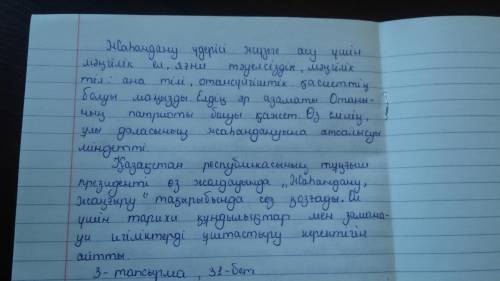 Жаһандану үдерісі жүзеге асу үшін
мәңгілік ел, яғни тәуелсіздік, мәңгілік
тіл: ана тілі, отансүйгіштік қасиеттің
болуы маңызды. Елдің әр азаматы Отаны-
ның патриоты болуы қажет. Өз елінің,
ұлы даласының жаһандануына атсалысуы
міндетті.
Қазақстан республикасының тұңғыш
президенті өз жолдауында „Жаһандану,
жаңғыру" тақырыбында сөз қозғады. Ол
үшін тарихи құндылықтар мен замана-
уи игіліктерді ұштастыру керектігін
айтты.
3- тапсырма, 31-бет